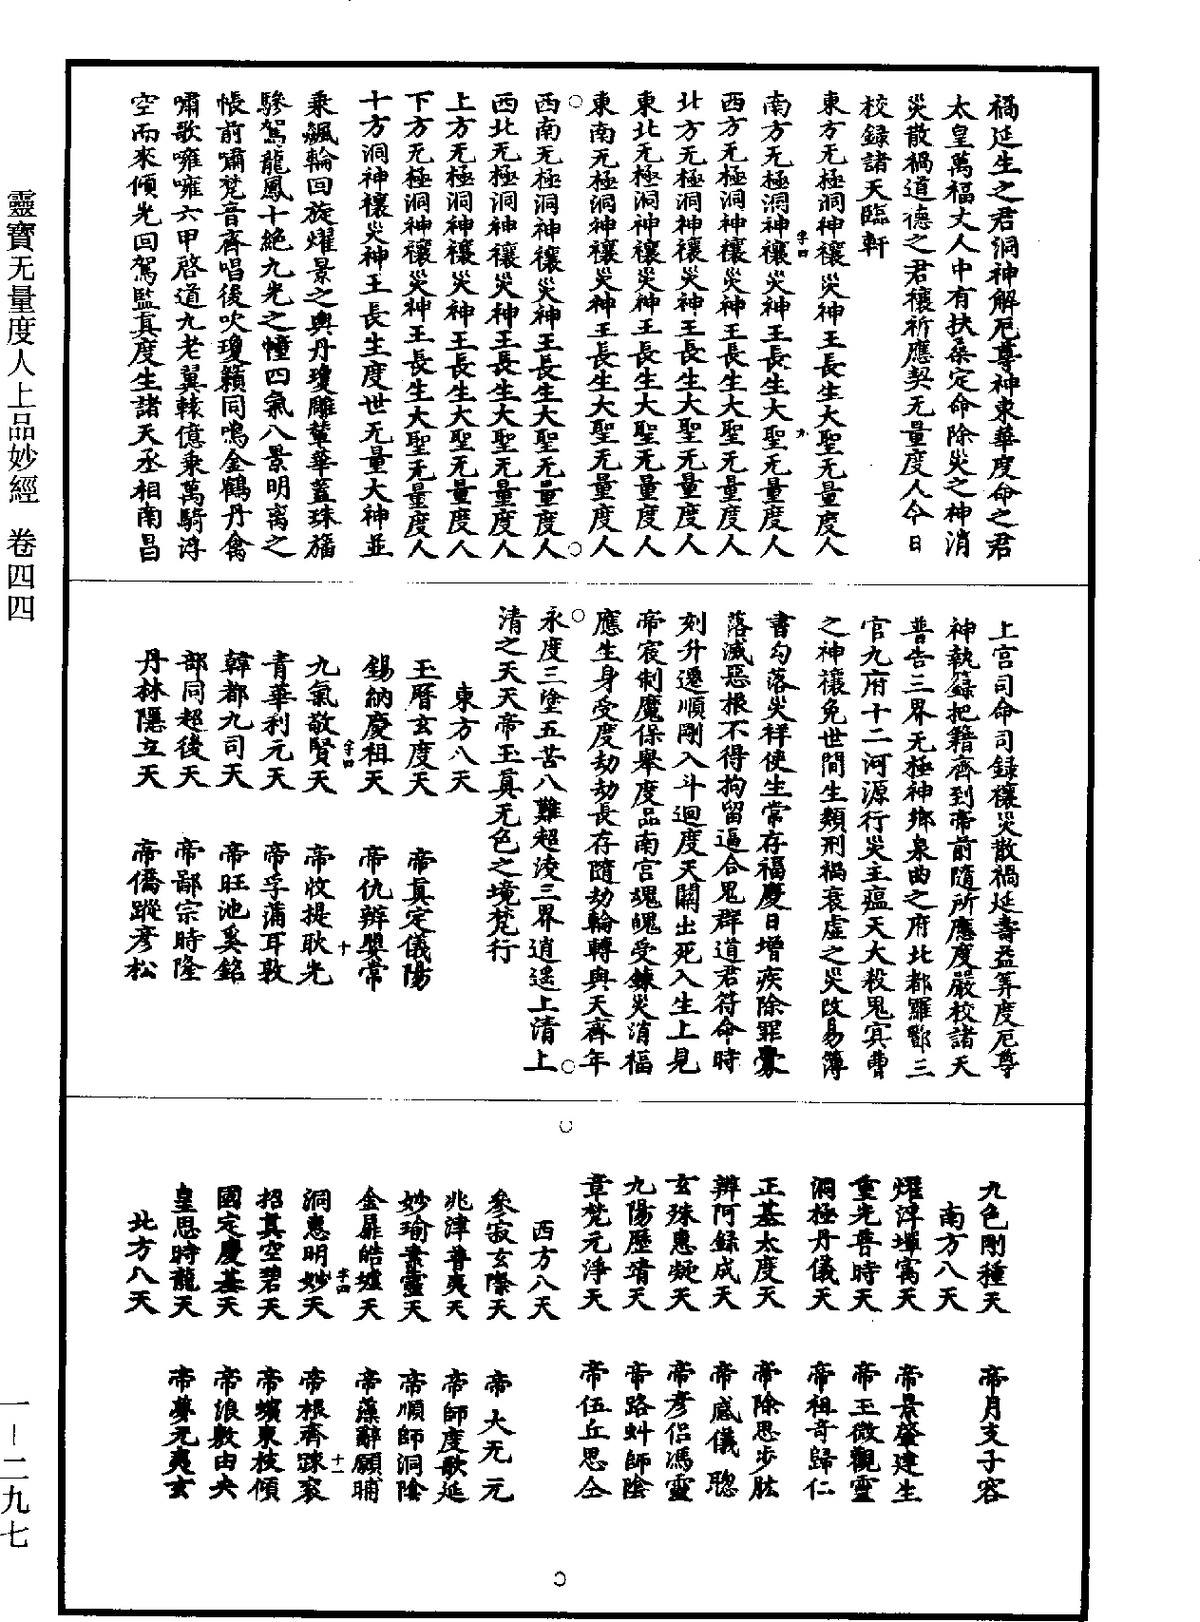 禍延生之君洞神解厄尊神東華度命之君
太皇萬福丈人中有扶桑定命除災之神消
災散禍道德之君禳祈應契无量度人今日
校錄諸天臨軒
東方无極洞神禳災神王長生大聖无量度人
南方无極洞神禳災神王長生大聖无量度人
西方无極洞神禳災神王長生大聖无量度人
北方无極洞神禳災神王長生大聖无量度人
東北无極洞神禳災神王長生大聖无量度人
東南无極洞神禳災神王長生大聖无量度人
西南无極洞神禳災神王長生大聖无量度人
西北无極洞神禳災神王長生大聖无量度人
上方无極洞神禳災神王長生大聖无量度人
下方无極洞神禳災神王長生大聖无量度人
十方洞神禳災神王長生度世无量大神並
乘飊輪回旋耀景之輿丹瓊雕輦華蓋珠旛
驂駕龍鳳十絶九光之幢四氣八景明离之
帳前嘯梵音齊唱後吹瓊籟同鳴金鶴丹禽
嘯歌嗈嗈六甲啓道九老翼轅億乘萬騎浮
空而來傾光回駕監真度生諸天丞相南昌
上宫司命司録禳災散禍延壽益筭度厄尊
神執籙把籍齊到帝前隨所應度嚴校諸天
普告三界无極神鄉泉曲之府北都羅酆三
官九府十二河源行災主瘟天大殺鬼冥曹
之神禳免世間生類刑禍衰虚之災改易簿
書勾落災祥使生常存福慶日增疾除罪
落滅惡根不得拘留逼合鬼群道君符命時
刻升遷順剛入斗迴度天關出死入生上見
帝宸制魔保舉度品南宫魂魄受鍊災消福
應生身受度劫劫長存隨劫輪轉與天齊年
永度三塗五苦八難超凌三界逍遥上清上
清之天天帝玉真无色之境梵行
東方八天
玉曆玄度天 帝真定儀陽
錫納慶祖天 帝仇辨嬰常
九氣敬賢天 帝㤈提耿光
青華利元天 帝孚蒲耳敦
韓都九司天 帝旺池奚銘
部同超後天 帝鄙宗時隆
丹林隱立天 帝僑蹤彦松
九色剛種天 帝月支子容
南方八天
燿浮墠寓天 帝景肇建生
重光菩時天 帝玉微觀靈
洞極丹儀天 帝祖奇歸仁
正基太度天 帝除思步肱
辨阿録成天 帝感儀
玄珠惠凝天 帝彦侣馮靈
九陽歷靖天 帝路蚪師陰
章梵元淨天 帝伍丘思仝
西方八天
參寂玄際天 帝大无元
兆津普夷天 帝師度歌延
妙瑜素靈天 帝順師洞陰
金扉皓墟天 帝藻辭願晡
洞惠明妙天 帝根齊踈衮
招真空碧天 帝蠙東枝傾
國定慶基天 帝浪敷由央
皇思時龍天 帝夢元夷玄
北方八天
字四
九
字四
十
字四
十一
靈寶无量度人上品妙經 卷四四
一－二九七